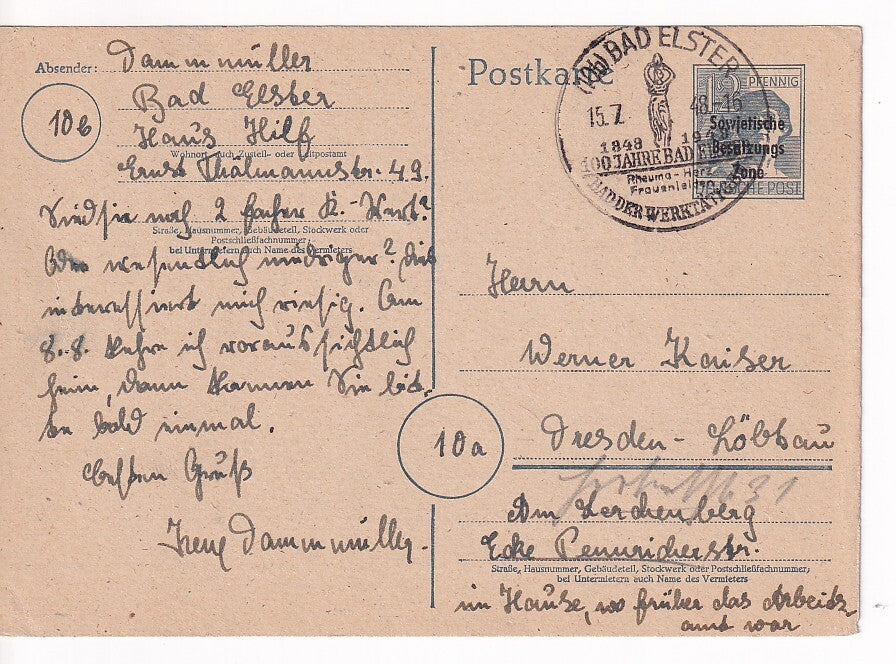 Absender: Dammmüller
Bad Elster
Haus Hilf
Wohnort, auch Zustell- oder Leitpostamt
Ernst Thälmannstr. 49.
10b
Sind sie noch 2 facher K.-Wert?
Straße, Hausnummer, Gebäudeteil, Stockwerk oder
Postschließfachnummer;
bei Untermietern auch Name des Vermieters
Oder wesentlich niedriger? Dies
interessiert mich riesig. Am
8.8. kehre ich voraussichtlich
heim, dann kommen Sie bit-
te bald einmal.
besten Gruß
Irene Dammmüller.
Postkarte
(10b) BAD ELSTER
15.7. 48.-16
1848 19
100 JAHRE BAD ELSTER
Rheuma - Herz
Frauenleiden
BAD DER WERKTÄTIGEN
12 PFENNIG
Sowjetische
Besatzungs
Zone
DEUTSCHE POST
Herrn
Werner Kaiser
10a
Dresden - Löbtau
31
Am Lerchenberg
Ecke Pennricherstr.
Straße, Hausnummer, Gebäudeteil, Stockwerk oder Postschließfachnummer;
bei Untermietern auch Name des Vermieters
im Hause, wo früher das Arbeits
amt war